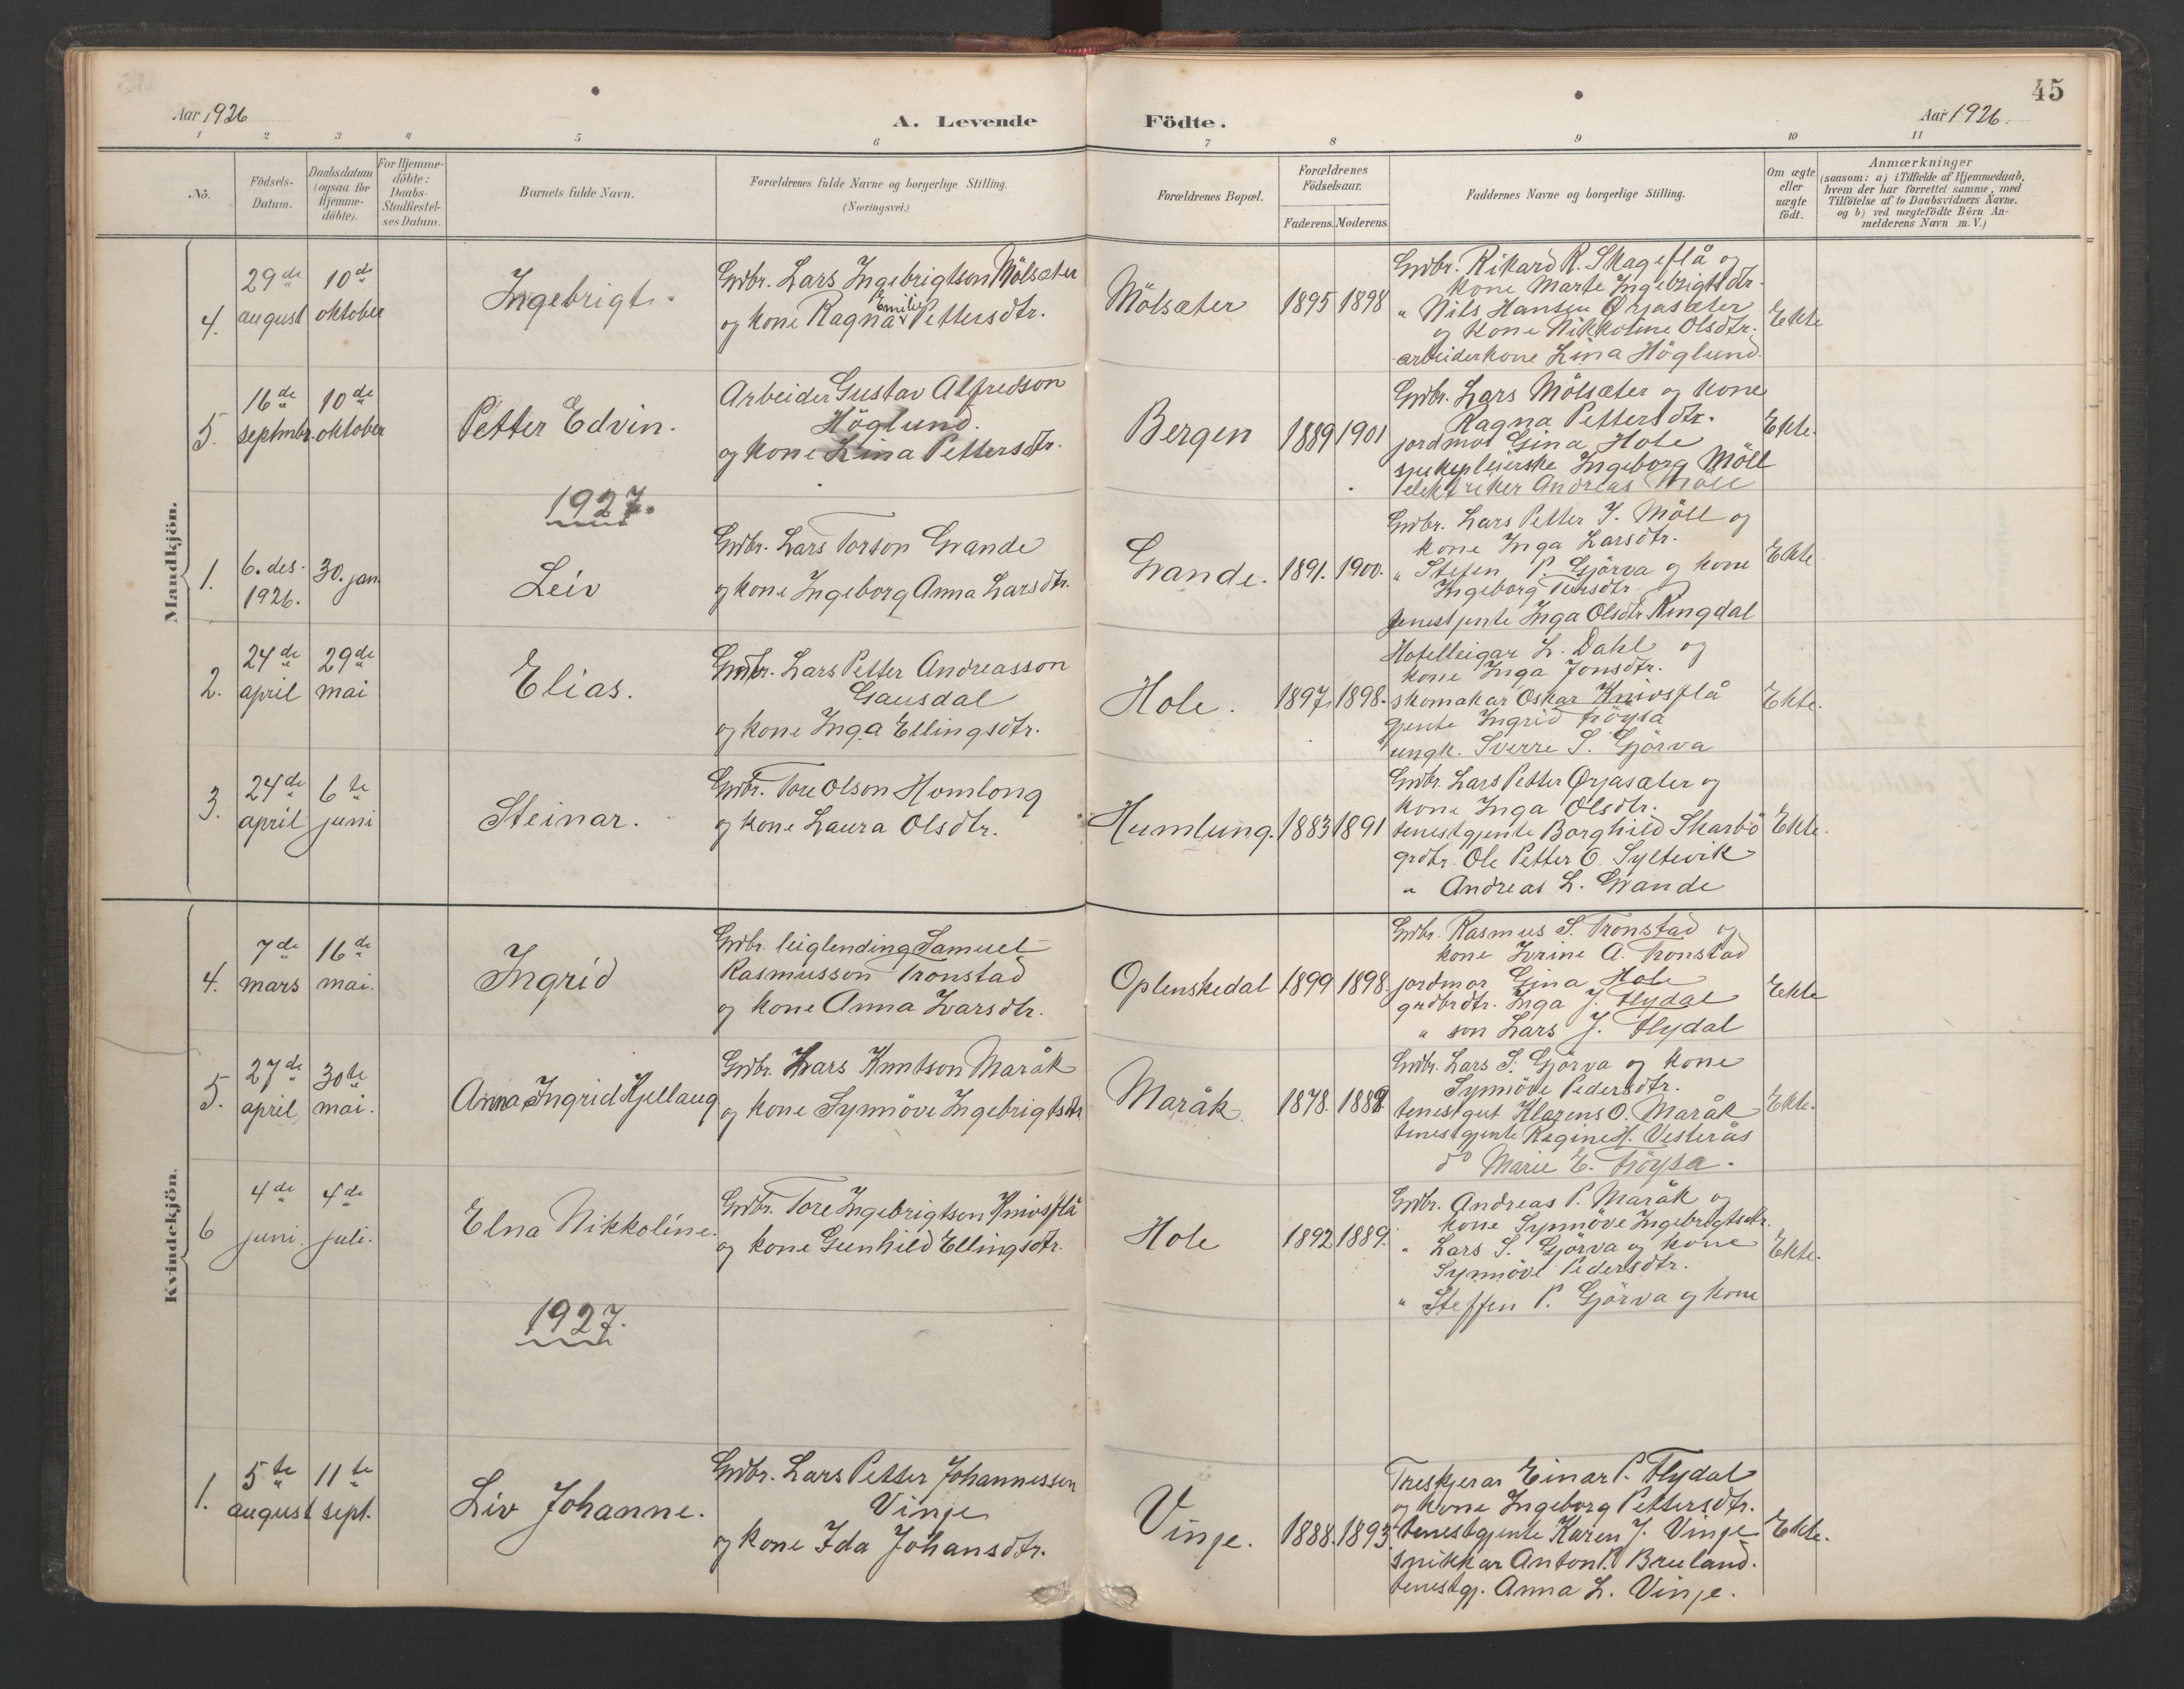 45
Aar 1926
A. Levende Födte.
Aar 1926.
1 2 3 4 5 6 7 8 9 10 11
No.
Födsels-Datum.
Daabsdatum (ogsaa for Hjemme-döbte).
For Hjemme-döbte: Daabs-Stadfestel-ses Datum.
Barnets fulde Navn.
Forældrenes fulde Navne og borgerlige Stilling.
(Næringsvei.)
Forældrenes Bopæl.
Forældrenes Födselsaar.
Faderens. Moderens.
Faddernes Navne og borgerlige Stilling.
Om ægte eller uægte födt.
Anmærkninger
(saasom: a) i Tilfælde af Hjemmedaab,
hvem der har forrettet samme, med
Tilföielse af to Daabsvidners Navne.
og b) ved uægtefödte Börn An-
melderens Navn m.V.)
Mandkjön.
4.
29de august
10de oktober
Ingebrigt.
Grdbr. Lars Ingebrigtson Mölsæter
og kone Ragna Emilie Pettersdtr.
Mölsæter
1895 1898
Grdbr. Rikard R. Skageflå og
kone Marte Ingebrigtsdtr.
" Nils Hansen Ørjasæter
og kone Nikkoline Olsdtr.
arbeiderkone Lina Höglund.
Ekte
5.
16de septmbr.
10de oktober
Petter Edvin.
Arbeider Gustav Alfredson
Höglund.
og kone Lina Pettersdtr.
Bergen
1889 1901
Grdbr. Lars Mölsæter og kone
Ragna Pettersdtr.
jordmor Gina Hole
sjukepleierske Ingeborg Möll
elektriker Andreas Möll
Ekte.
1927.
1.
6. des. 1926.
30. jan.
Leiv
Grdbr. Lars Torson Grande
og kone Ingeborg Anna Larsdtr.
Grande.
1891. 1900.
Grdbr. Lars Petter I. Möll og
kone Inga Larsdtr.
" Stefen P. Gjörva og kone
Ingeborg Torsdtr.
tenestjente Inga Olsdtr Ringdal
Ekte
2.
24de april
29de mai
Elias.
Grdbr. Lars Petter Andreasson
Gausdal
og kone Inga Ellingsdtr.
Hole.
1897. 1898.
Hotelleigar L. Dahl og
kone Inga Jonsdtr.
skomakar Oskar Knivsflå
gjente Ingrid Fröysa
ungk. Sverre S. Gjörva
Ekte.
3.
24de april
6te juni
Steinar.
Grdbr. Tore Olson Homlong
og kone Laura Olsdtr.
Humlung.
1883 1891
Grdbr. Lars Petter Ørjasæter og
kone Inga Olsdtr.
tenestgjente Borghild Skarbö
grdbr. Ole Petter O. Syltevik
" Andreas L. Grande
Ekte.
Kvindekjön.
4.
7de mars
16de mai.
Ingrid
Grdbr. leiglending Samuel
Rasmusson Tronstad
og kone Anna Ivarsdtr.
Oplenskedal
1899 1898.
Grdbr. Rasmus S. Tronstad og
kone Ivrine A. Tronstad
jordmor Gina Hole
grdbrdtr. Inga J. Flydal
" son Lars J. Flydal
Eekte
5.
27de april
30te mai.
Anna Ingrid Kjellaug
Grdbr. Lars Knutson Maråk
og kone Synnöve Ingebrigtsdtr
Maråk
1878. 1889.
Grdbr. Lars S. Gjörva og kone
Synnöve Pedersdtr.
tenestgut Klarens O. Maråk
tenestgjente Regine H. Vesterås
do Marie E. Fröysa.
Ekte.
6
4de juni.
4de juli.
Elna Nikkoline.
Grdbr. Tore Ingebrigtson Knivsflå
og kone Gunhild Ellingsdtr.
Hole
1892 1889.
Grdbr. Andreas P. Maråk og
kone Synnöve Ingebrigtsdtr.
" Lars S. Gjörva og kone
Synnöve Pedersdtr.
" Steffen P. Gjörva og kone
Ekte.
1927.
1.
5te august
11te sept.
Liv Johanne.
Grdbr. Lars Petter Johannessen
Vinje
og kone Ida Johansdtr.
Vinje.
1888. 1893.
Treskjerar Einar P. Flydal
og kone Ingeborg Pettersdtr.
tenestgjente Karen J. Vinje
snikkar Anton P. Bruland.
tenestgj. Anna L. Vinje.
Ekte.